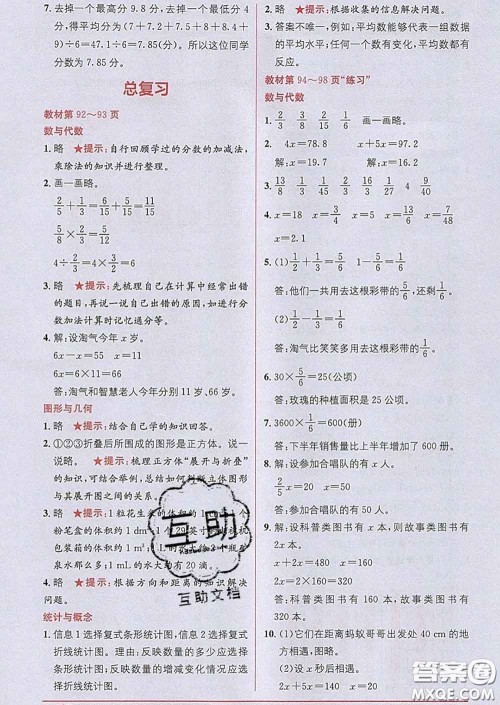 7. 去掉一个最高分 9.8 分，去掉一个最低分 4
分，得平均分为(7+7.2+8+8.2+8.5+8.2)÷
6=47.1÷6=7.85(分)。所以这位同学
分数为 7.85 分。
总复习
教材第 92～93 页
数与代数
1. 略 ★提示：自行回顾学过的分数的加减法，
乘除法的知识并进行整理。
2. 画一画略。
2/5+1/3=6/15+5/15=11/15
5/8×2/3=5/12
4÷2/3=4×3/2=6
3. 略 ★提示：先梳理自己在计算中经常出错
的题目，再说一说自己出错的原因，如进行分数
加法计算时忘记通分等。
4. 解：设淘气今年 x 岁。
6x-x=55 x=11
6x=6×11=66
答：淘气和智慧老人今年分别 11 岁、66 岁。
图形与几何
1. 略 ★提示：结合自己学的知识回答。
2. ①②③折叠后所围成的图形是正方体。说一
说略 ★提示：梳理正方体“展开与折叠”
的知识，可结合举例，总结如何判断立体图形与
其展开图之间的关系。
3. 略 ★提示：1 粒花生米的体积约 1
粉笔盒的体积约 1 dm³，1 台 29 英寸
包装箱的体积约 1 m³，1 L 约
泉水那么多；1 mL 的水大约有 20 滴。
4. 略 ★提示：根据方向和距离的知识解决
问题。
统计与概念
1. 信息 1 选择复式条形统计图。信息 2 选择复式
折线统计图。理由：反映数量的多少应选择
条形统计图；反映数量的增减变化情况应选
择折线统计图。
2. 略 ★提示：根据收集的信息解决问题。
3. 答案不唯一，例如，平均数能够代表一组数据
的平均水平；任何一个数有变化，平均数都有
反应。
教材第 94～98 页“练习”
数与代数
1. 2/3 2/3 4/15 1/6 画一画略。
2. 4x=78.8 x+5x=97.2
解答略。 解答略。
3. 13/8 13/24 16/45 1/34 13/27 4 9/40
4. x=18 x=3/4 x=5/3 x=90
x=2.1
5. (1)1/2+1/3=5/6 1-5/6=1/6
答：他们一共用去这根彩带的5/6，还剩1/6。
(2)1/2-1/3=1/6
答：淘气比笑笑多用去这根彩带的1/6。
6. 30×5/6=25(公顷)
答：玫瑰的种植面积是 25 公顷。
7. 3600×1/6=600(册)
答：下半年销售量比上半年增加了 600 册。
8. 解：设参加合唱队的有 x 人。
2/7x=80 x=280
答：参加合唱队的有 280 人。
9. 解：设科普类图书有 x 本，则故事类图书有
2x 本。
x+2x=480 x=160
2x=2×160=320
答：科普类图书有 160 本，故事类图书有
320 本。
10. (1)它们在距离蚂蚁哥哥出发处 40 cm 的地
方相遇。画图略。
(2)设 x 秒后相遇。
2x+5x=140 x=20
互助
互助文档
答案圈
MXQE.COM